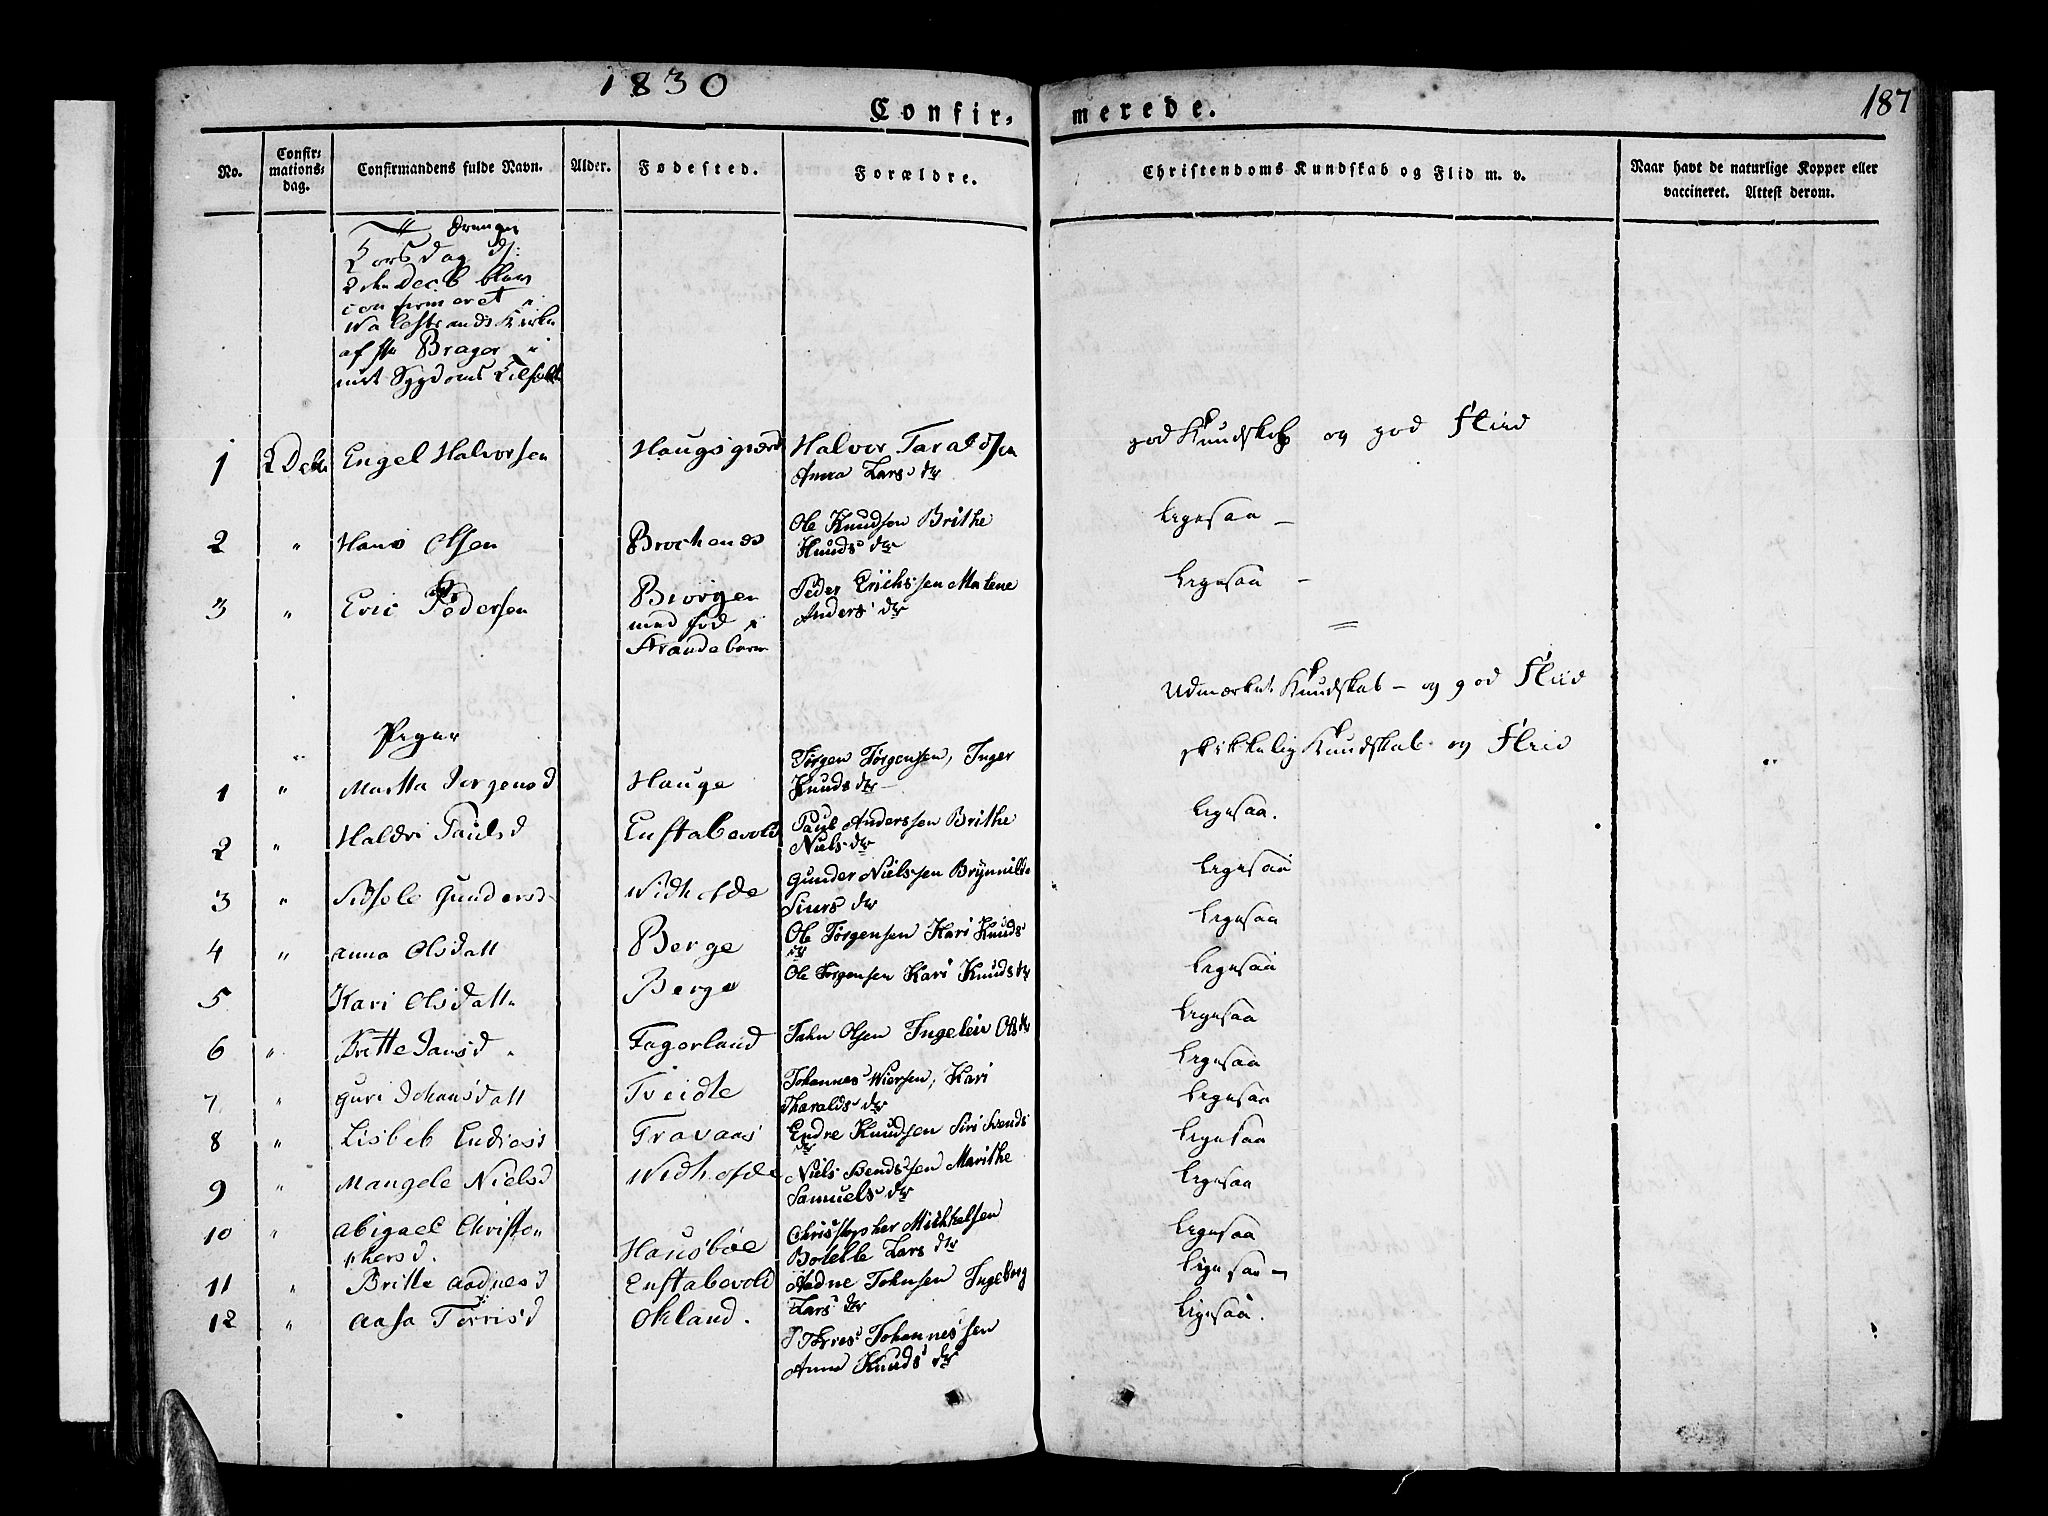 1830
187
Confir-
merede.
No.
Confir-
mations-
dag.
Confirmandens fulde Navn.
Alder.
Fødested.
Forældre.
Christendoms Kundskab og Flid m. v.
Naar havt de naturlige Kopper eller
vaccineret. Attest derom.
Drenger
Torsdag d:
2den Decb blev
confirmeret i
Walestrands Kirke
af Hr Brager i
mit Sygdoms Tilfælde
1 2 Decb Engel Halvorsen Haugsgierd Halvor Taraldsen
Anna Lars dtr
god Kundskab og god Fliid
2 " Hans Olsen Brochenæs Ole Knudsen Brithe
Knuds dtr
Ligesaa -
3 " Eric Pedersen Biørgen Peder Erichssen Malene
med fød i Anders dtr
Strandebarm
Ligesaa -
Udmærket Kundskab - og god Fliid
Piger
1 " Martta Jørgensd Hauge Jørgen Jørgensen, Inger
Knuds dtr -
skikkelig Kundskab og Fliid
2 " Haldri Paulsd Eustabevold Paul Anderssen Brithe
Niels dtr
Ligesaa.
3 " Sidsele Gundersd Widhofde Gunder Nielssen Brynnild
Siurs dtr
Ligesaa
4 " Anna Olsdatt Berge Ole Jørgensen Kari Knuds
dtr
Ligesaa
5 Kari Olsdatt Berge Ole Jørgensen Kari Knuds dtr
Ligesaa
6 " Britte Jansd Fagerland Jahn Olsen Ingeleiv Ols dtr
Ligesaa
7 " Guri Johansdatt Tveidte Johannes Wiersen, Kari
Tharalds dtr
Ligesaa
8 " Lisbeb Endresd Travaas Endre Knudsen Siri Svends
dtr
Ligesaa
9 " Mangele Nielsd Widhofde Niels Bendssen Marithe
Samuels dtr
Ligesaa
10 " Abigael Christo-
phersd. Hausbøe Christopher Michkelsen
Botelle Lars dtr
Ligesaa
11 " Britte Aadnesd Eustabevold Aadne Johnsen Ingeborg
Lars dtr
Ligesaa
12 " Aasa Tørrisd Økland. Tørres Johannessen
Anna Knuds dtr
Ligesaa.